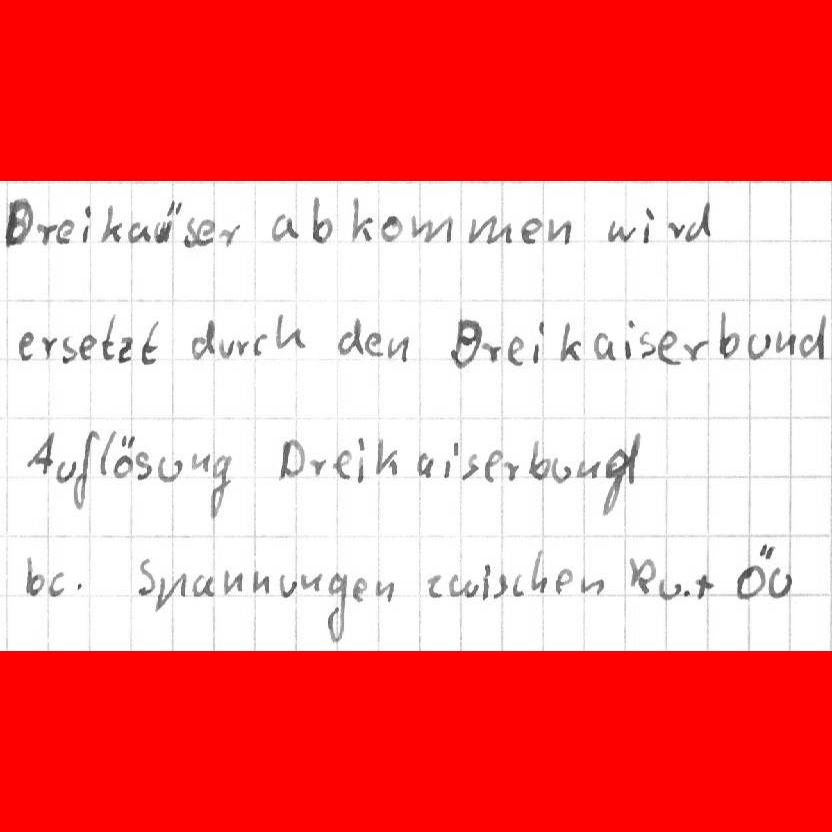 Dreikaiser abkommen wird
ersetzt durch den Dreikaiserbund
Auflösung Dreikaiserbund
bc. Spannungen zwischen Ru.+ ÖU